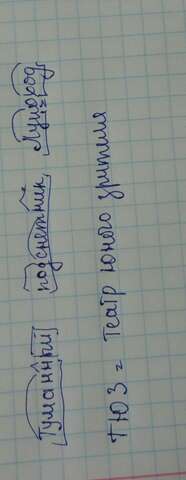 Туманный подснежник, Луноход.
ТЮЗ = Театр юного зрителя